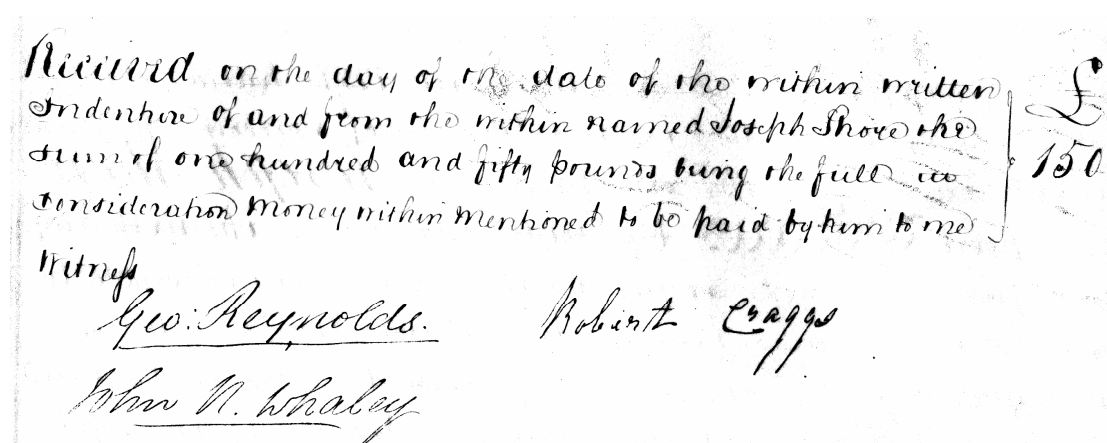 Received on the day of the date of the within written
Indenture of and from the within named Joseph Shore the
sum of one hundred and fifty pounds being the full
Consideration Money within Mentioned to be paid by him to me
£
150
Witness
Geo: Reynolds.
Robert Craggs
John N. Whaley